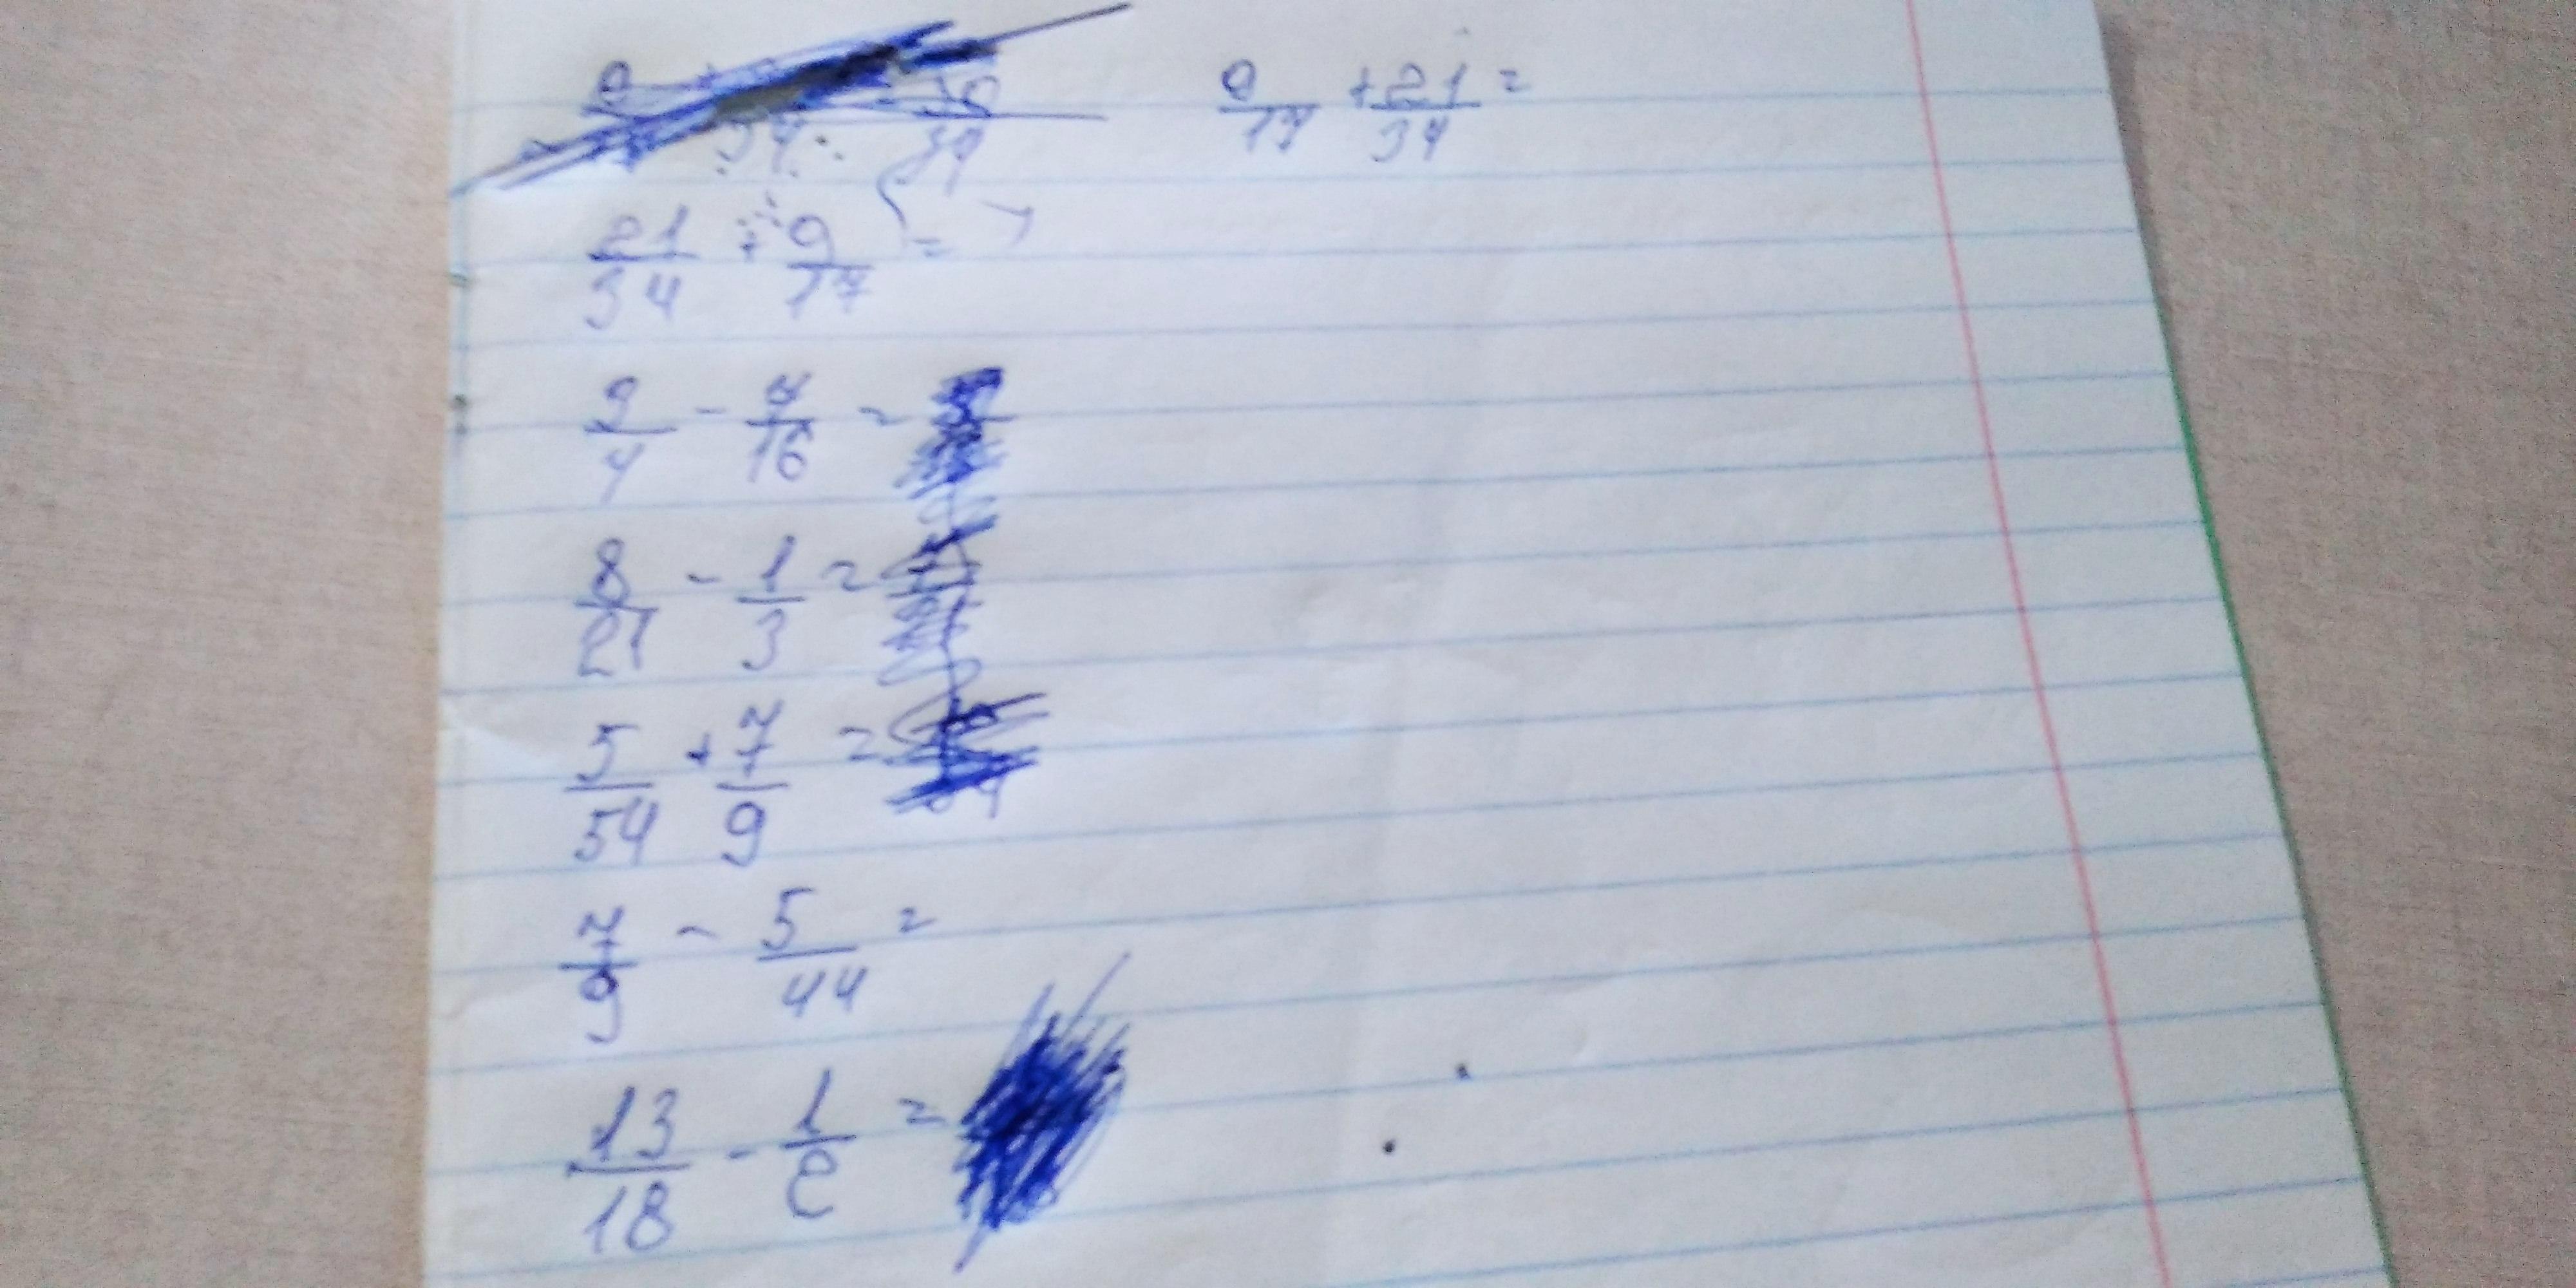 9/17 + 21/34 =
21/34 + 9/17 =
9/4 - 7/16 =
8/21 - 1/3 =
5/54 + 7/9 =
7/9 - 5/44 =
13/18 - 1/2 =